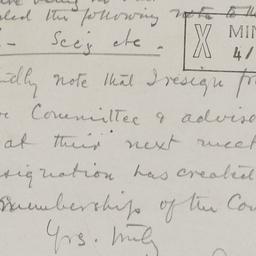 the following note to the
Secy etc.
MIN
X
4/
note that I resign
Committee & advise
at their next meet
signation has created
memberships of the Com
Yrs. truly